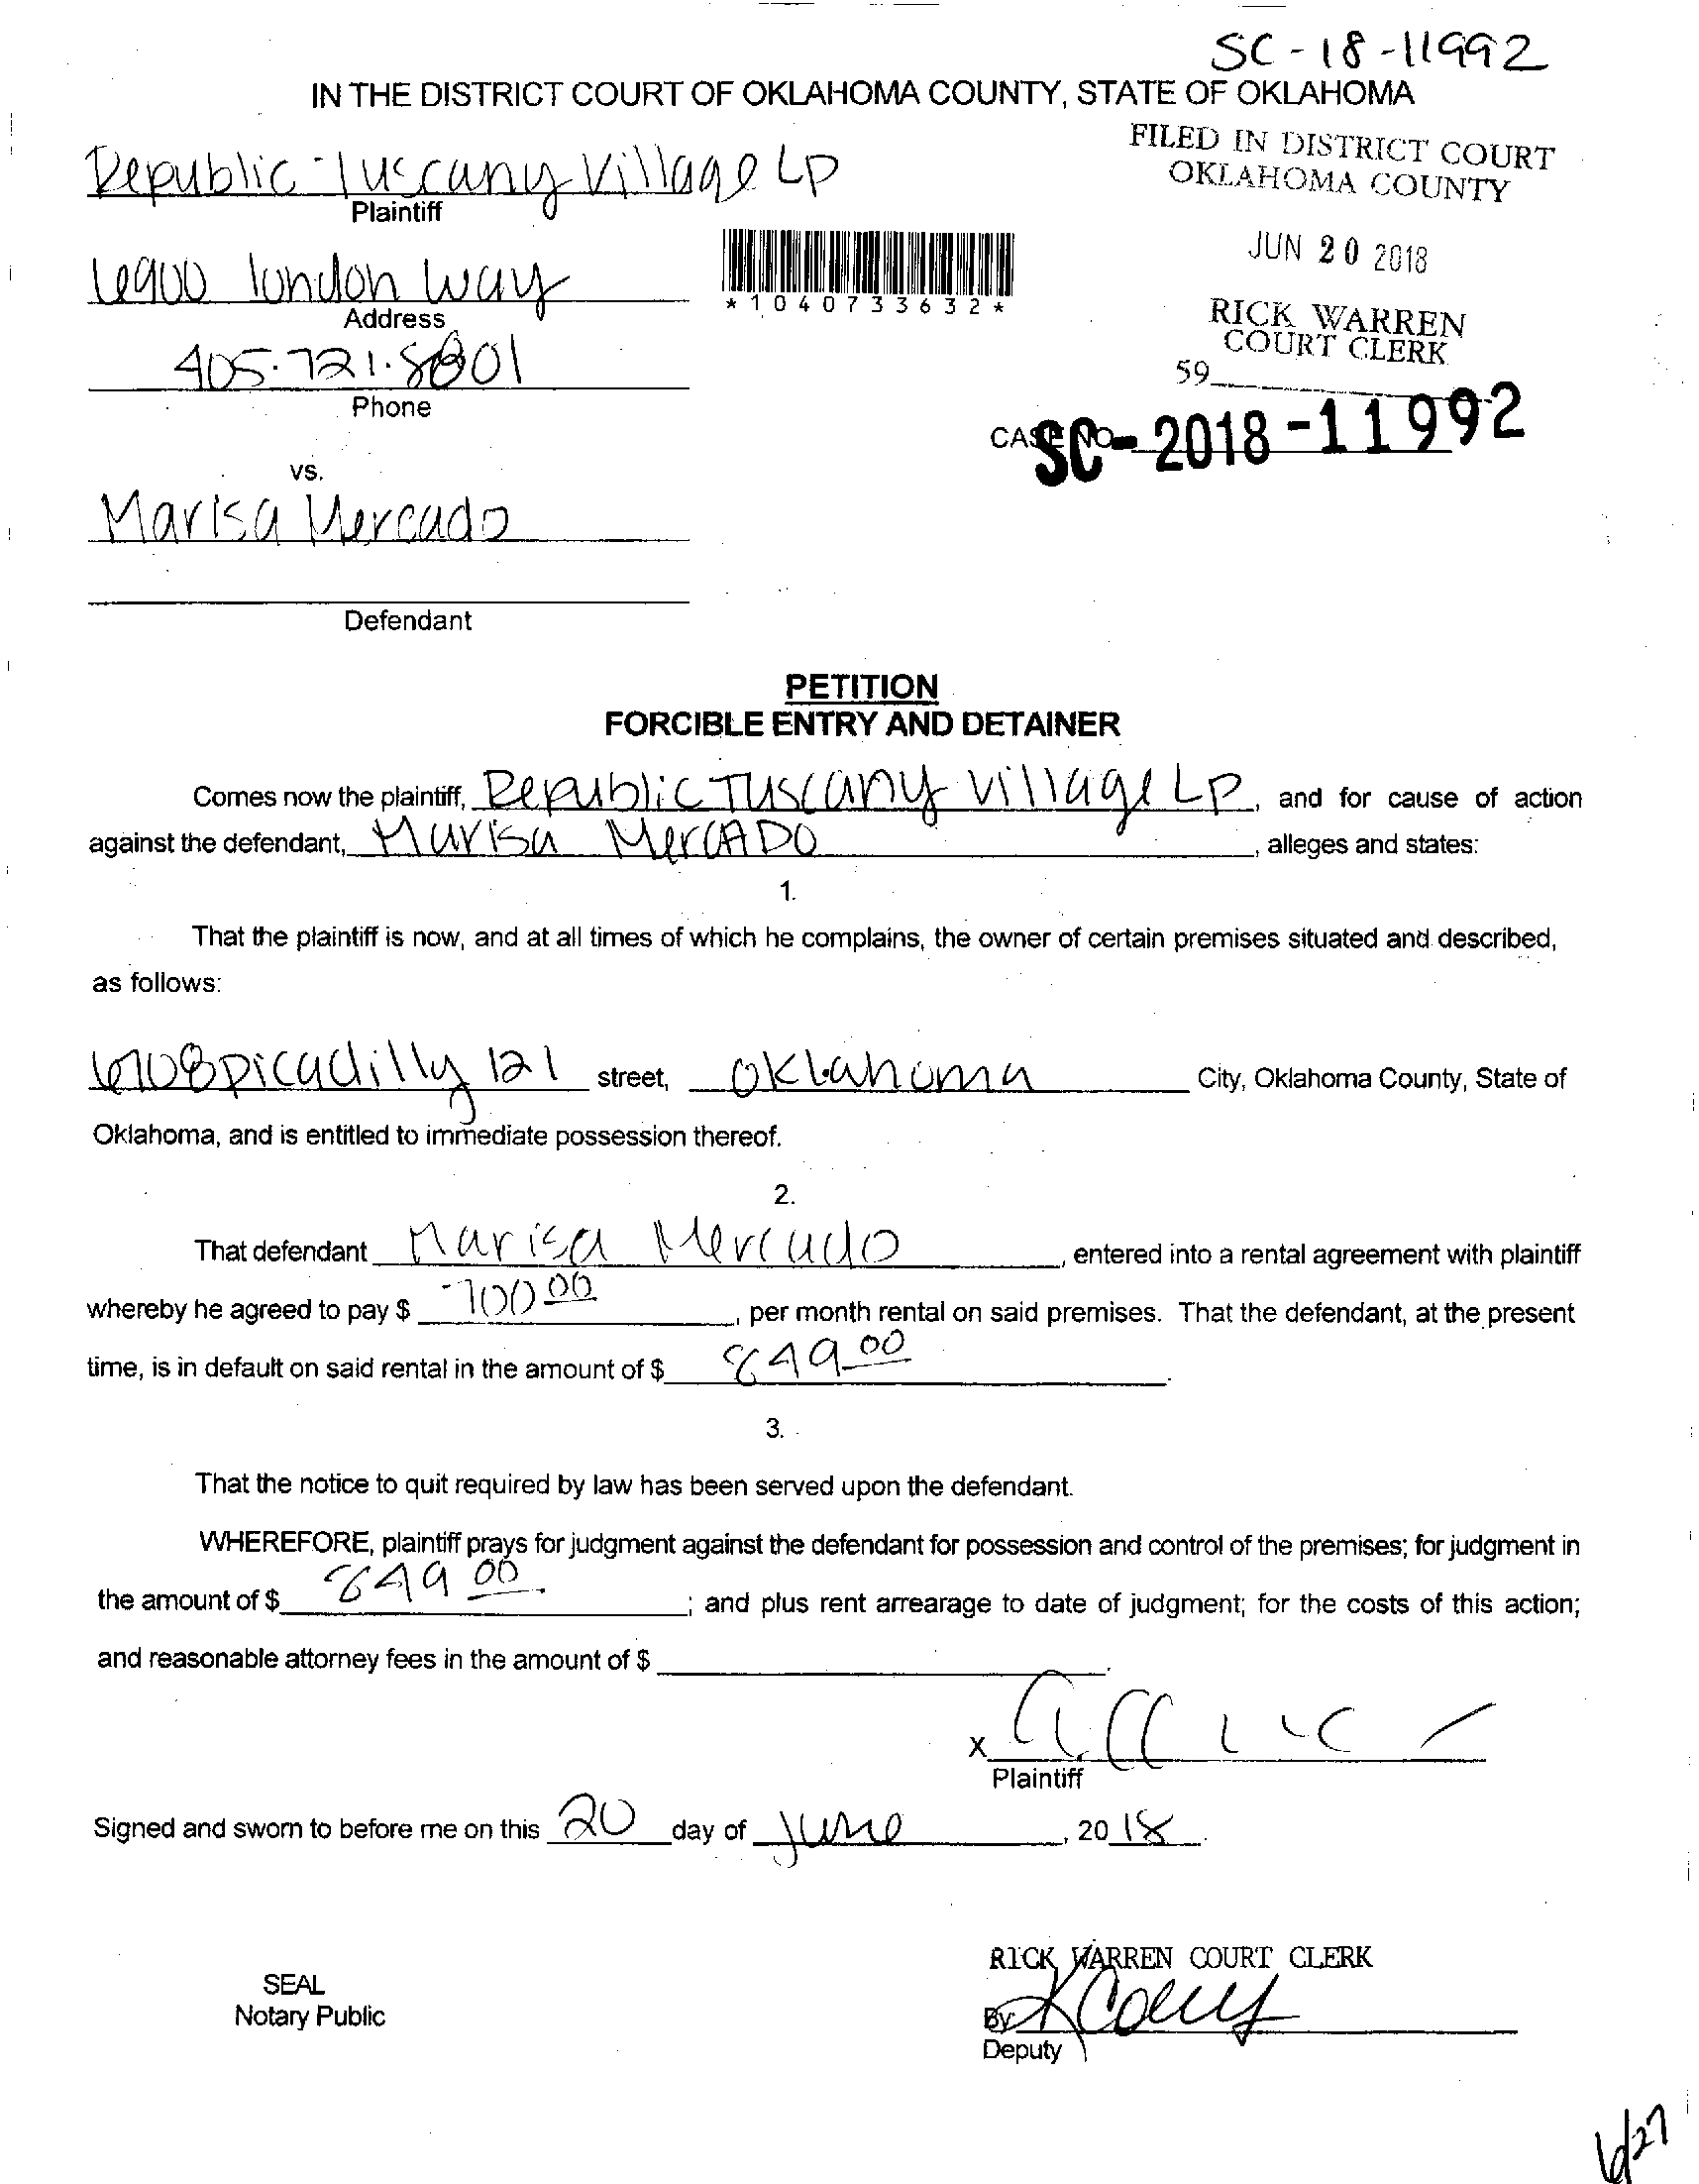 SC-18-11992
IN THE DISTRICT COURT OF OKLAHOMA COUNTY, STATE OF OKLAHOMA
FILED IN DISTRICT COURT
OKLAHOMA COUNTY
Republic-Tuscany Village LP
Plaintiff
JUN 20 2018
6900 london way
*1040733632*
Address
RICK WARREN
COURT CLERK
405.721.8801
59
Phone
CASE NO.
SC-2018-11992
vs.
Marisa Mercado
Defendant
PETITION
FORCIBLE ENTRY AND DETAINER
Comes now the plaintiff, Republic Tuscany Village LP, and for cause of action
against the defendant, Marisa MercADO, alleges and states:
1.
That the plaintiff is now, and at all times of which he complains, the owner of certain premises situated and described,
as follows:
6708 picadilly 121 street, Oklahoma City, Oklahoma County, State of
Oklahoma, and is entitled to immediate possession thereof.
2.
That defendant Marisa Mercado, entered into a rental agreement with plaintiff
whereby he agreed to pay $ 700 00, per month rental on said premises. That the defendant, at the present
time, is in default on said rental in the amount of $ 849.00.
3.
That the notice to quit required by law has been served upon the defendant.
WHEREFORE, plaintiff prays for judgment against the defendant for possession and control of the premises; for judgment in
the amount of $ 849 00; and plus rent arrearage to date of judgment; for the costs of this action;
and reasonable attorney fees in the amount of $.
X
Plaintiff
Signed and sworn to before me on this 20 day of June, 2018.
RICK WARREN COURT CLERK
SEAL
Notary Public
By
Deputy
6/27